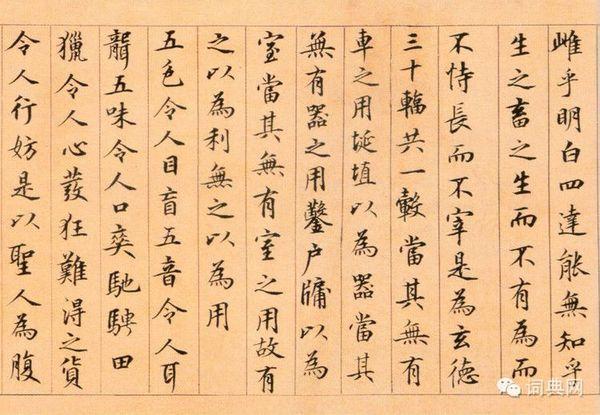 雌乎明白四達能無知乎
生之畜之生而不有為而
不恃長而不宰是為玄德
三十輻共一轂當其無有
車之用埏埴以為器當其
無有器之用鑿户牖以為
室當其無有室之用故有
之以為利無之以為用
五色令人目盲五音令人耳
聾五味令人口爽馳騁田
獵令人心發狂難得之貨
令人行妨是以聖人為腹
词典网